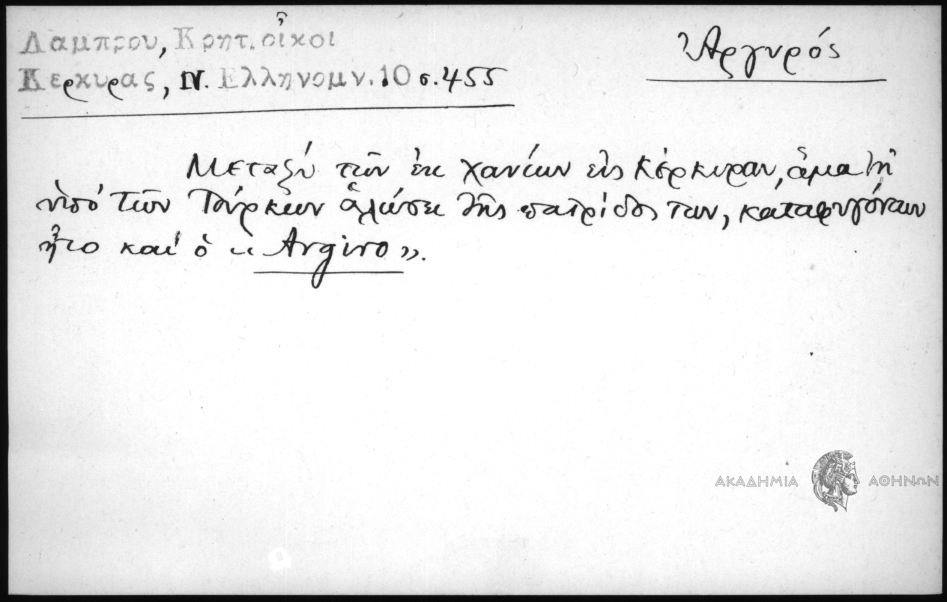 Λαμπρου, Κρητ. οἶκοι
Κερκυρας, Ν. Ελληνομν. 10 σ. 455
Ἀργυρός
Μεταξύ τῶν ἐκ Χανίων εἰς Κέρκυραν, ἅμα τῇ
ὑπό τῶν Τούρκων ἁλώσει τῆς πατρίδος των, καταφυγόντων
ἦτο καί ὁ «Argiro».
ΑΚΑΔΗΜΙΑ ΑΘΗΝΩΝ